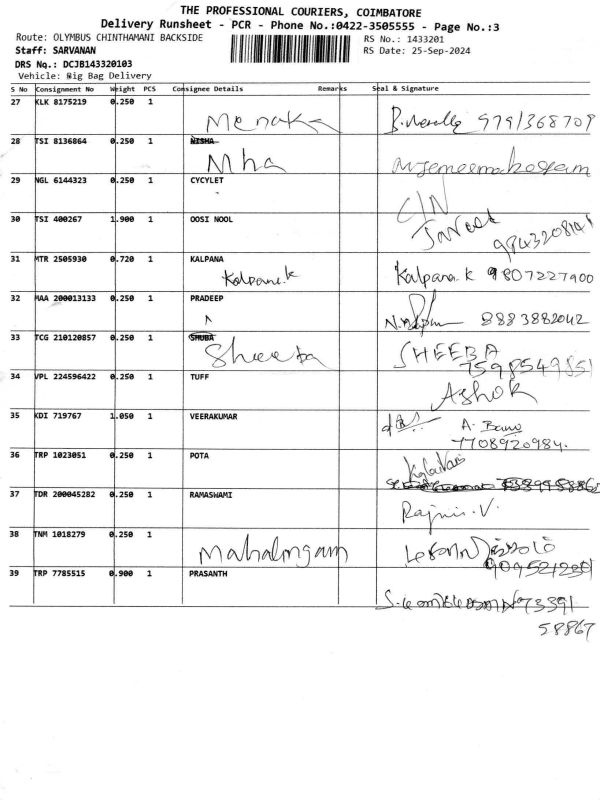 THE PROFESSIONAL COURIERS, COIMBATORE
Delivery Runsheet - PCR - Phone No.:0422-3505555 - Page No.:3
Route: OLYMBUS CHINTHAMANI BACKSIDE RS No.: 1433201
Staff: SARVANAN RS Date: 25-Sep-2024
DRS No.: DCJB143320103
Vehicle: Big Bag Delivery
S No Consignment No Weight PCS Consignee Details Remarks Seal & Signature
27 KLK 8175219 0.250 1
Menaka 9791368709
28 TSI 8136864 0.250 1 NISHA
Mha
29 NGL 6144323 0.250 1 CYCYLET
30 TSI 400267 1.900 1 OOSI NOOL
31 MTR 2505930 0.720 1 KALPANA
Kalpana.k Kalpana.k 9807227900
32 MAA 200013133 0.250 1 PRADEEP
8883882042
33 TCG 210120857 0.250 1 SHUBA
Sheeba SHEEBA
7598549851
34 VPL 224596422 0.250 1 TUFF
Ashok
35 KDI 719767 1.050 1 VEERAKUMAR
A. Banu
7708920984.
36 TRP 1023051 0.250 1 POTA
37 TDR 200045282 0.250 1 RAMASWAMI
38 TNM 1018279 0.250 1
Mahalingam
39 TRP 7785515 0.900 1 PRASANTH
73391
58867